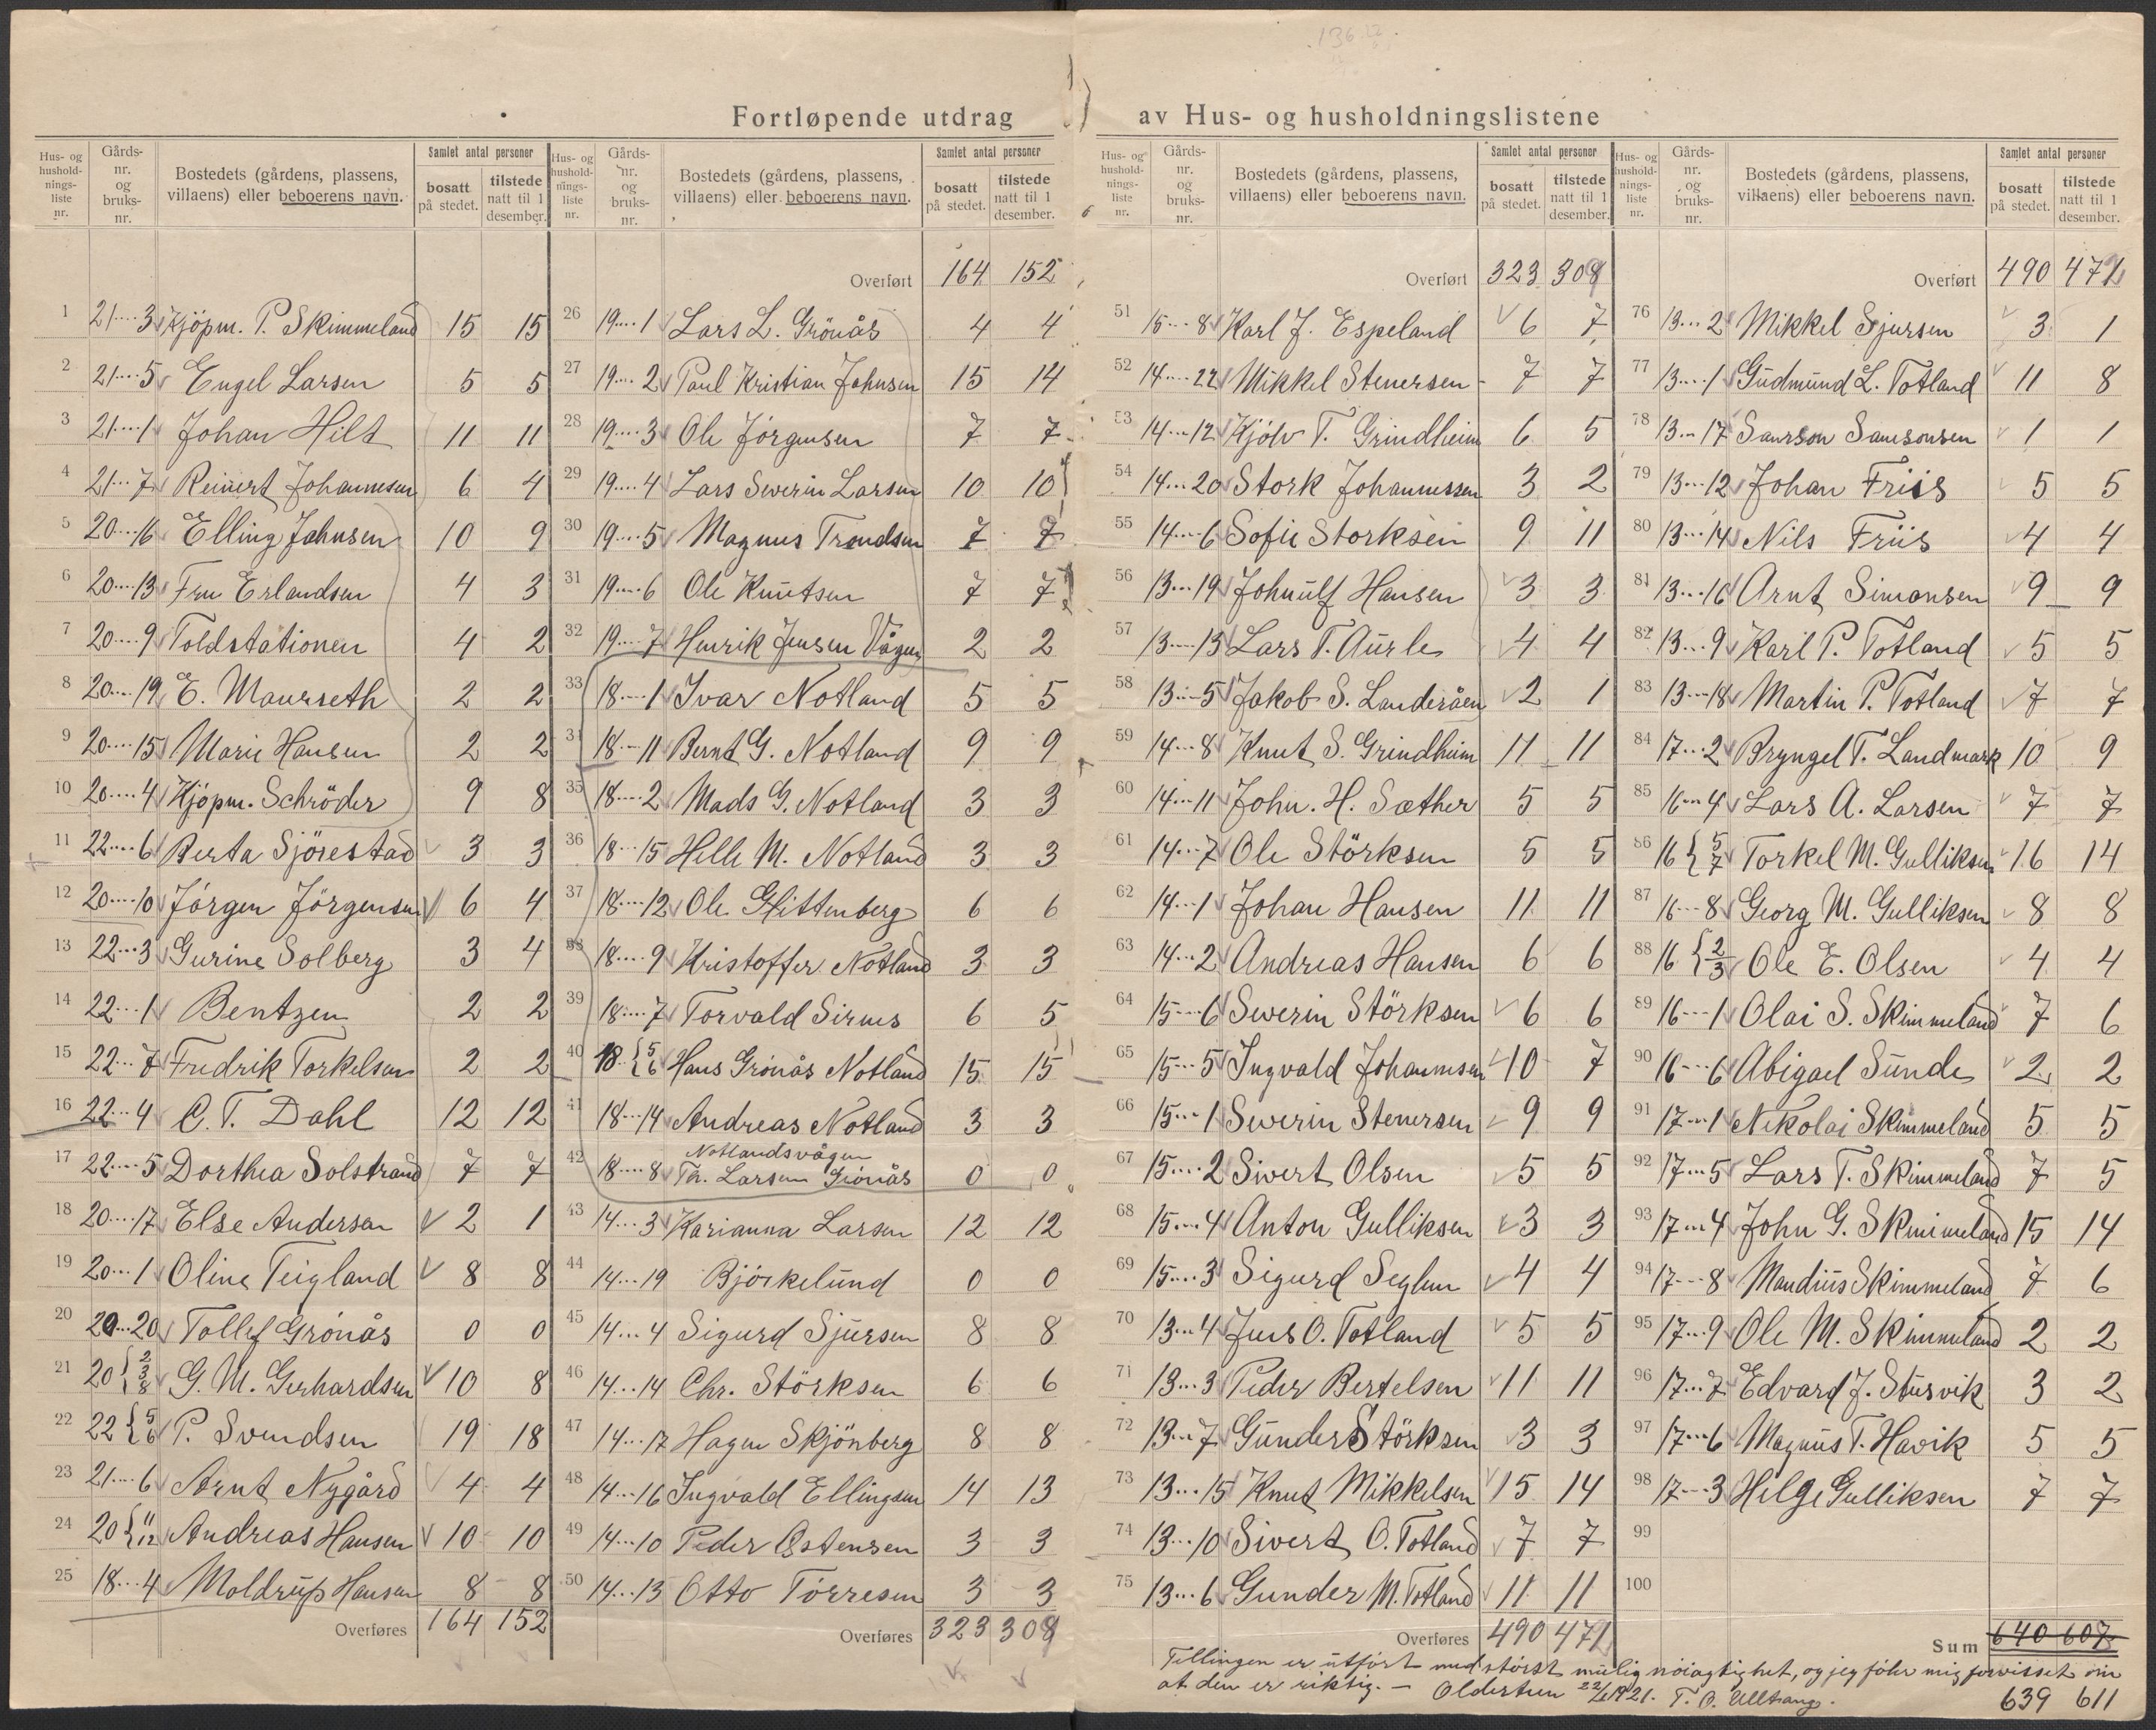 Fortløpende utdrag av Hus- og husholdningslistene
Hus- og husholdnings-liste nr. Gårds-nr. og bruks-nr. Bostedets (gårdens, plassens, villaens) eller beboerens navn. Samlet antal personer bosatt på stedet. tilstede natt til 1 desember.
1 21....3 Kjöpm. P. Skimmeland 15 15
2 21....5 Engel Larsen 5 5
3 21....1 Johan Hilt 11 11
4 21...7 Reinert Johannesen 6 4
5 20....16 Elling Johnsen 10 9
6 20....13 Fru Erlandsen 4 3
7 20....9 Toldstationen 4 2
8 20....19 E. Maurseth 2 2
9 20....15 Marie Hansen 2 2
10 20....4 Kjöpm. Schröder 9 8
11 22....6 Berta Sjörestad 3 3
12 20....10 Jörgen Jörgensen 6 4
13 22...3 Gurine Solberg 3 4
14 22...1 Bentzen 2 2
15 22...7 Fredrik Torkelsen 2 2
16 22...4 C. T. Dahl 12 12
17 22....5 Dorthea Solstrand 7 7
18 20....17 Else Andersen 2 1
19 20...1 Oline Teigland 8 8
20 20...20 Tollef Grönås 0 0
21 20 { 2 3 8 G. M. Gerhardsen 10 8
22 22 { 5 6 P. Svendsen 19 18
23 21....6 Arnt Nygård 4 4
24 20 { 11 12 Andreas Hansen 10 10
25 18...4 Moldrup Hansen 8 8
Overføres 164 152
Hus- og husholdnings-liste nr. Gårds-nr. og bruks-nr. Bostedets (gårdens, plassens, villaens) eller beboerens navn. Samlet antal personer bosatt på stedet. tilstede natt til 1 desember.
Overført 164 152
26 19....1 Lars L. Grönås 4 4
27 19....2 Paul Kristian Johnsen 15 14
28 19....3 Ole Jörgensen 7 7
29 19....4 Lars Severin Larsen 10 10
30 19....5 Magnus Trondsen 7 7
31 19....6 Ole Knutsen 7 7
32 19....7 Henrik Jensen Vågen 2 2
33 18....1 Ivar Notland 5 5
34 18...11 Bernt G. Notland 9 9
35 18....2 Mads G. Notland 3 3
36 18...15 Helle M. Notland 3 3
37 18....12 Ole Glittenberg 6 6
38 18....9 Kristoffer Notland 3 3
39 18....7 Torvald Sirnes 6 5
40 18 { 5 6 Hans Grönås Notland 15 15
41 18...14 Andreas Notland 3 3
Notlandsvågen
42 18....8 Th. Larsen Grönås 0 0
43 14...3 Karianna Larsen 12 12
44 14...19 Björkelund 0 0
45 14...4 Sigurd Sjursen 8 8
46 14...14 Chr. Störksen 6 6
47 14...17 Hagen Skjönberg 8 8
48 14...16 Ingvald Ellingsen 14 13
49 14...10 Peder Østensen 3 3
50 14...13 Otto Törresen 3 3
Overføres 323 308
Hus- og husholdnings-liste nr. Gårds-nr. og bruks-nr. Bostedets (gårdens, plassens, villaens) eller beboerens navn. Samlet antal personer bosatt på stedet. tilstede natt til 1 desember.
Overført 323 308
51 15...8 Karl J. Espeland 6 7
52 14....22 Mikkel Stenersen 7 7
53 14...12 Kjölv T. Grindheim 6 5
54 14...20 Stork Johannessen 3 2
55 14....6 Sofie Storksen 9 11
56 13...19 Johnulf Hansen 3 3
57 13....13 Lars T. Aurle 4 4
58 13...5 Jakob S. Landeråen 2 1
59 14...8 Knut S. Grindheim 11 11
60 14...11 John. H. Sæther 5 5
61 14...7 Ole Störksen 5 5
62 14...1 Johan Hansen 11 11
63 14...2 Andreas Hansen 6 6
64 15...6 Severin Störksen 6 6
65 15...5 Ingvald Johannesen 10 7
66 15...1 Severin Stenersen 9 9
67 15....2 Sivert Olsen 5 5
68 15...4 Anton Gulliksen 3 3
69 15...3 Sigurd Seglem 4 4
70 13...4 Jens O. Totland 5 5
71 13...3 Peder Bertelsen 11 11
72 13...7 Gunder Störksen 3 3
73 13...15 Knut Mikkelsen 15 14
74 13...10 Sivert O. Totland 7 7
75 13...6 Gunder M. Totland 11 11
Overføres 490 471
Hus- og husholdnings-liste nr. Gårds-nr. og bruks-nr. Bostedets (gårdens, plassens, villaens) eller beboerens navn. Samlet antal personer bosatt på stedet. tilstede natt til 1 desember.
Overført 490 471
76 13...2 Mikkel Sjursen 3 1
77 13....1 Gudmund L. Totland 11 8
78 13...17 Samson Samsonsen 1 1
79 13...12 Johan Friis 5 5
80 13...14 Nils Friis 4 4
81 13...16 Arnt Simonsen 9 9
82 13...9 Karl P. Totland 5 5
83 13...18 Martin P. Totland 7 7
84 17...2 Bryngel T. Landmark 10 9
85 16...4 Lars A. Larsen 7 7
86 16 { 5 7 Torkel M. Gulliksen 16 14
87 16...8 Georg M. Gulliksen 8 8
88 16 { 2 3 Ole E. Olsen 4 4
89 16...1 Olai S. Skimmeland 7 6
90 16...6 Abigael Sunde 2 2
91 17...1 Nikolai Skimmeland 5 5
92 17...5 Lars T. Skimmeland 7 5
93 17...4 John G. Skimmeland 15 14
94 17...8 Mandius Skimmeland 7 6
95 17...9 Ole M. Skimmeland 2 2
96 17...7 Edvard J. Stusvik 3 2
97 17...6 Magnus T. Havik 5 5
98 17...3 Helge Gulliksen 7 7
99
100
Sum 640 607
Tellingen er utfört med störst mulig nöiagtighet, og jeg föler mig forvisset om
at den er riktig. — Oldertun 22/1 1921. T. O.
639 611